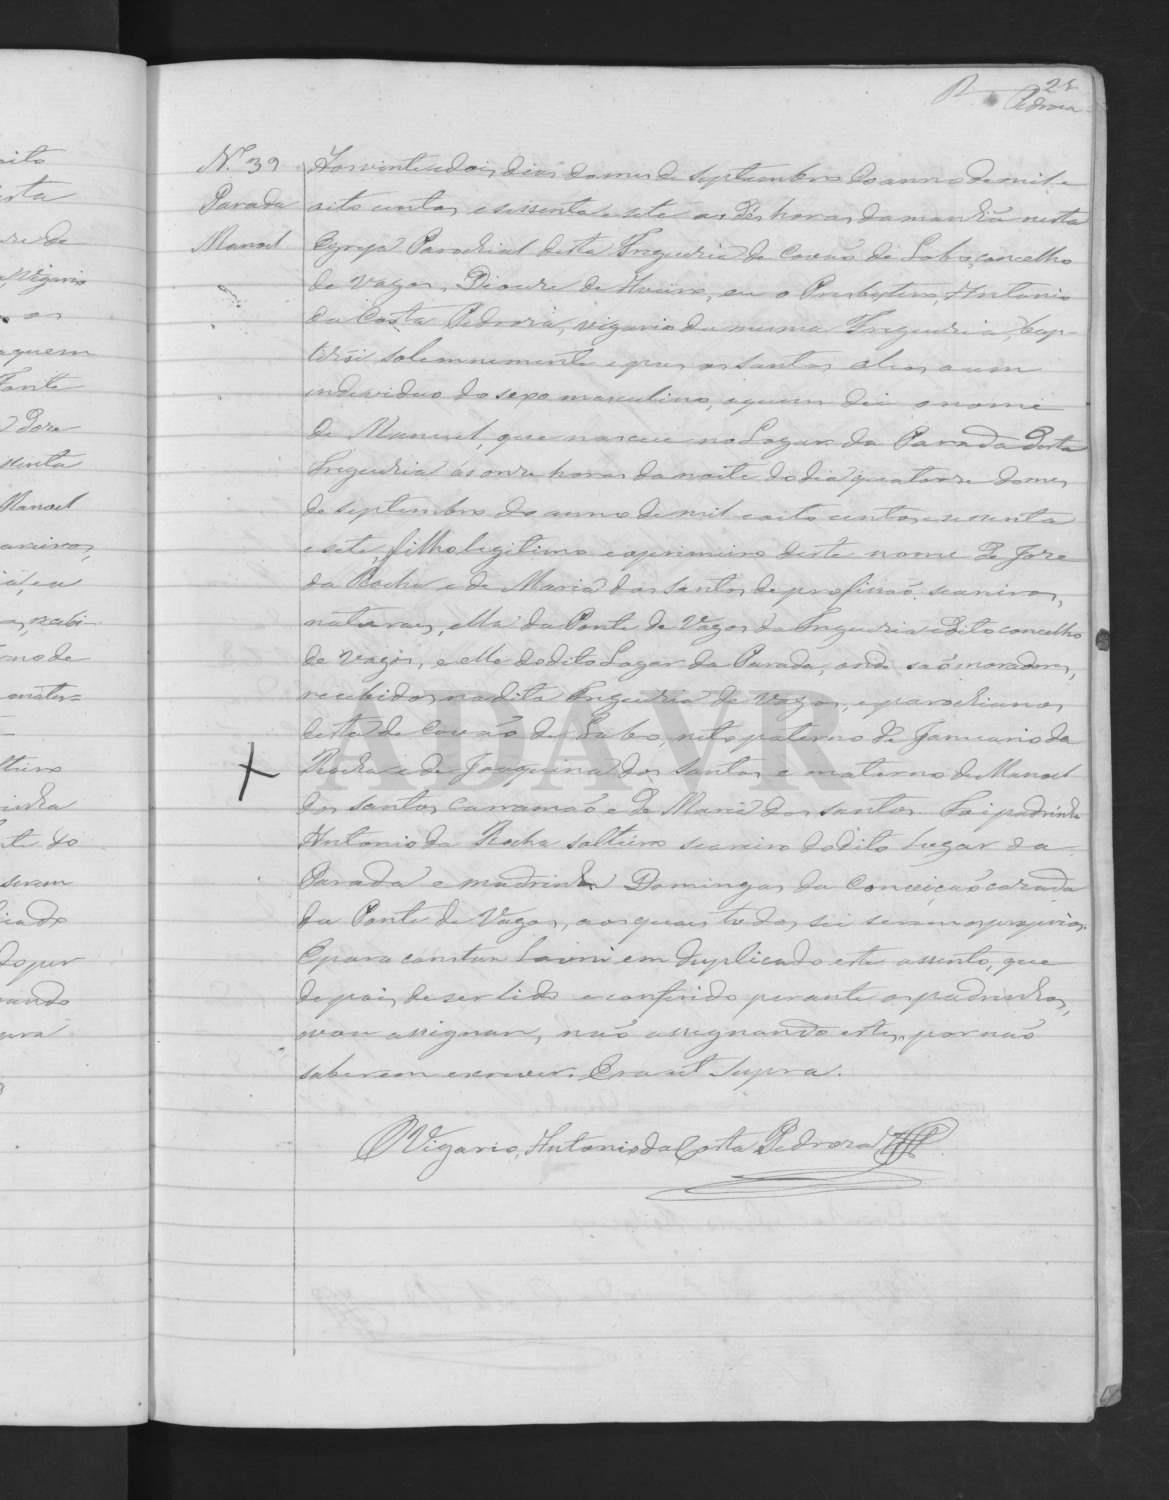 25
Pedroza
N.º 39
Parada
Manoel
Aos vinte e dois dias do mes de Septembro do anno de mil e
oito centos e sessenta e sete as dés horas da manhã nesta
Egreja Parochial desta Freguezia de Covão do Lobo, concelho
de Vagos, Diocese de Aveiro, eu o Presbytero, Antonio
da Costa Pedroza, vigario da mesma Freguezia, bap-
tizei solemnemente e puz os santos oleos a um
individuo do sexo masculino, a quem dei o nome
de Manoel, que nasceu no Logar da Parada desta
Freguezia ás onze horas da noite do dia quatorze do mes
de septembro do anno de mil e oito centos e sessenta
e sete, filho legitimo e o primeiro deste nome de Joze
da Rocha e de Maria dos Santos de profissaõ seareiros,
naturaes, ella da Ponte de Vagos da Freguezia e dito concelho
de Vagos, e elle do dito Logar da Parada, onde saõ moradores,
recebidos na dita Freguezia de Vagos, e parochianos
desta de Covão do Lobo, neto paterno de Januario da
Rocha e de Joaquina dos Santos e materno de Manoel
dos Santos Carramaõ e de Maria dos Santos. Foi padrinho
Antonio da Rocha solteiro seareiro do dito Lugar da
Parada e madrinha Domingas da Conceiçaõ cazada
da Ponte de Vagos, aos quaes todos sei serem os proprios.
E para constar lavrei em duplicado este assento, que
depois de ser lido e conferido perante os padrinhos,
vou assignar, não assignando estes, por não
saberem escrever. Era ut supra.
O Vigario, Antonio da Costa Pedroza
ADAVR
Manoel